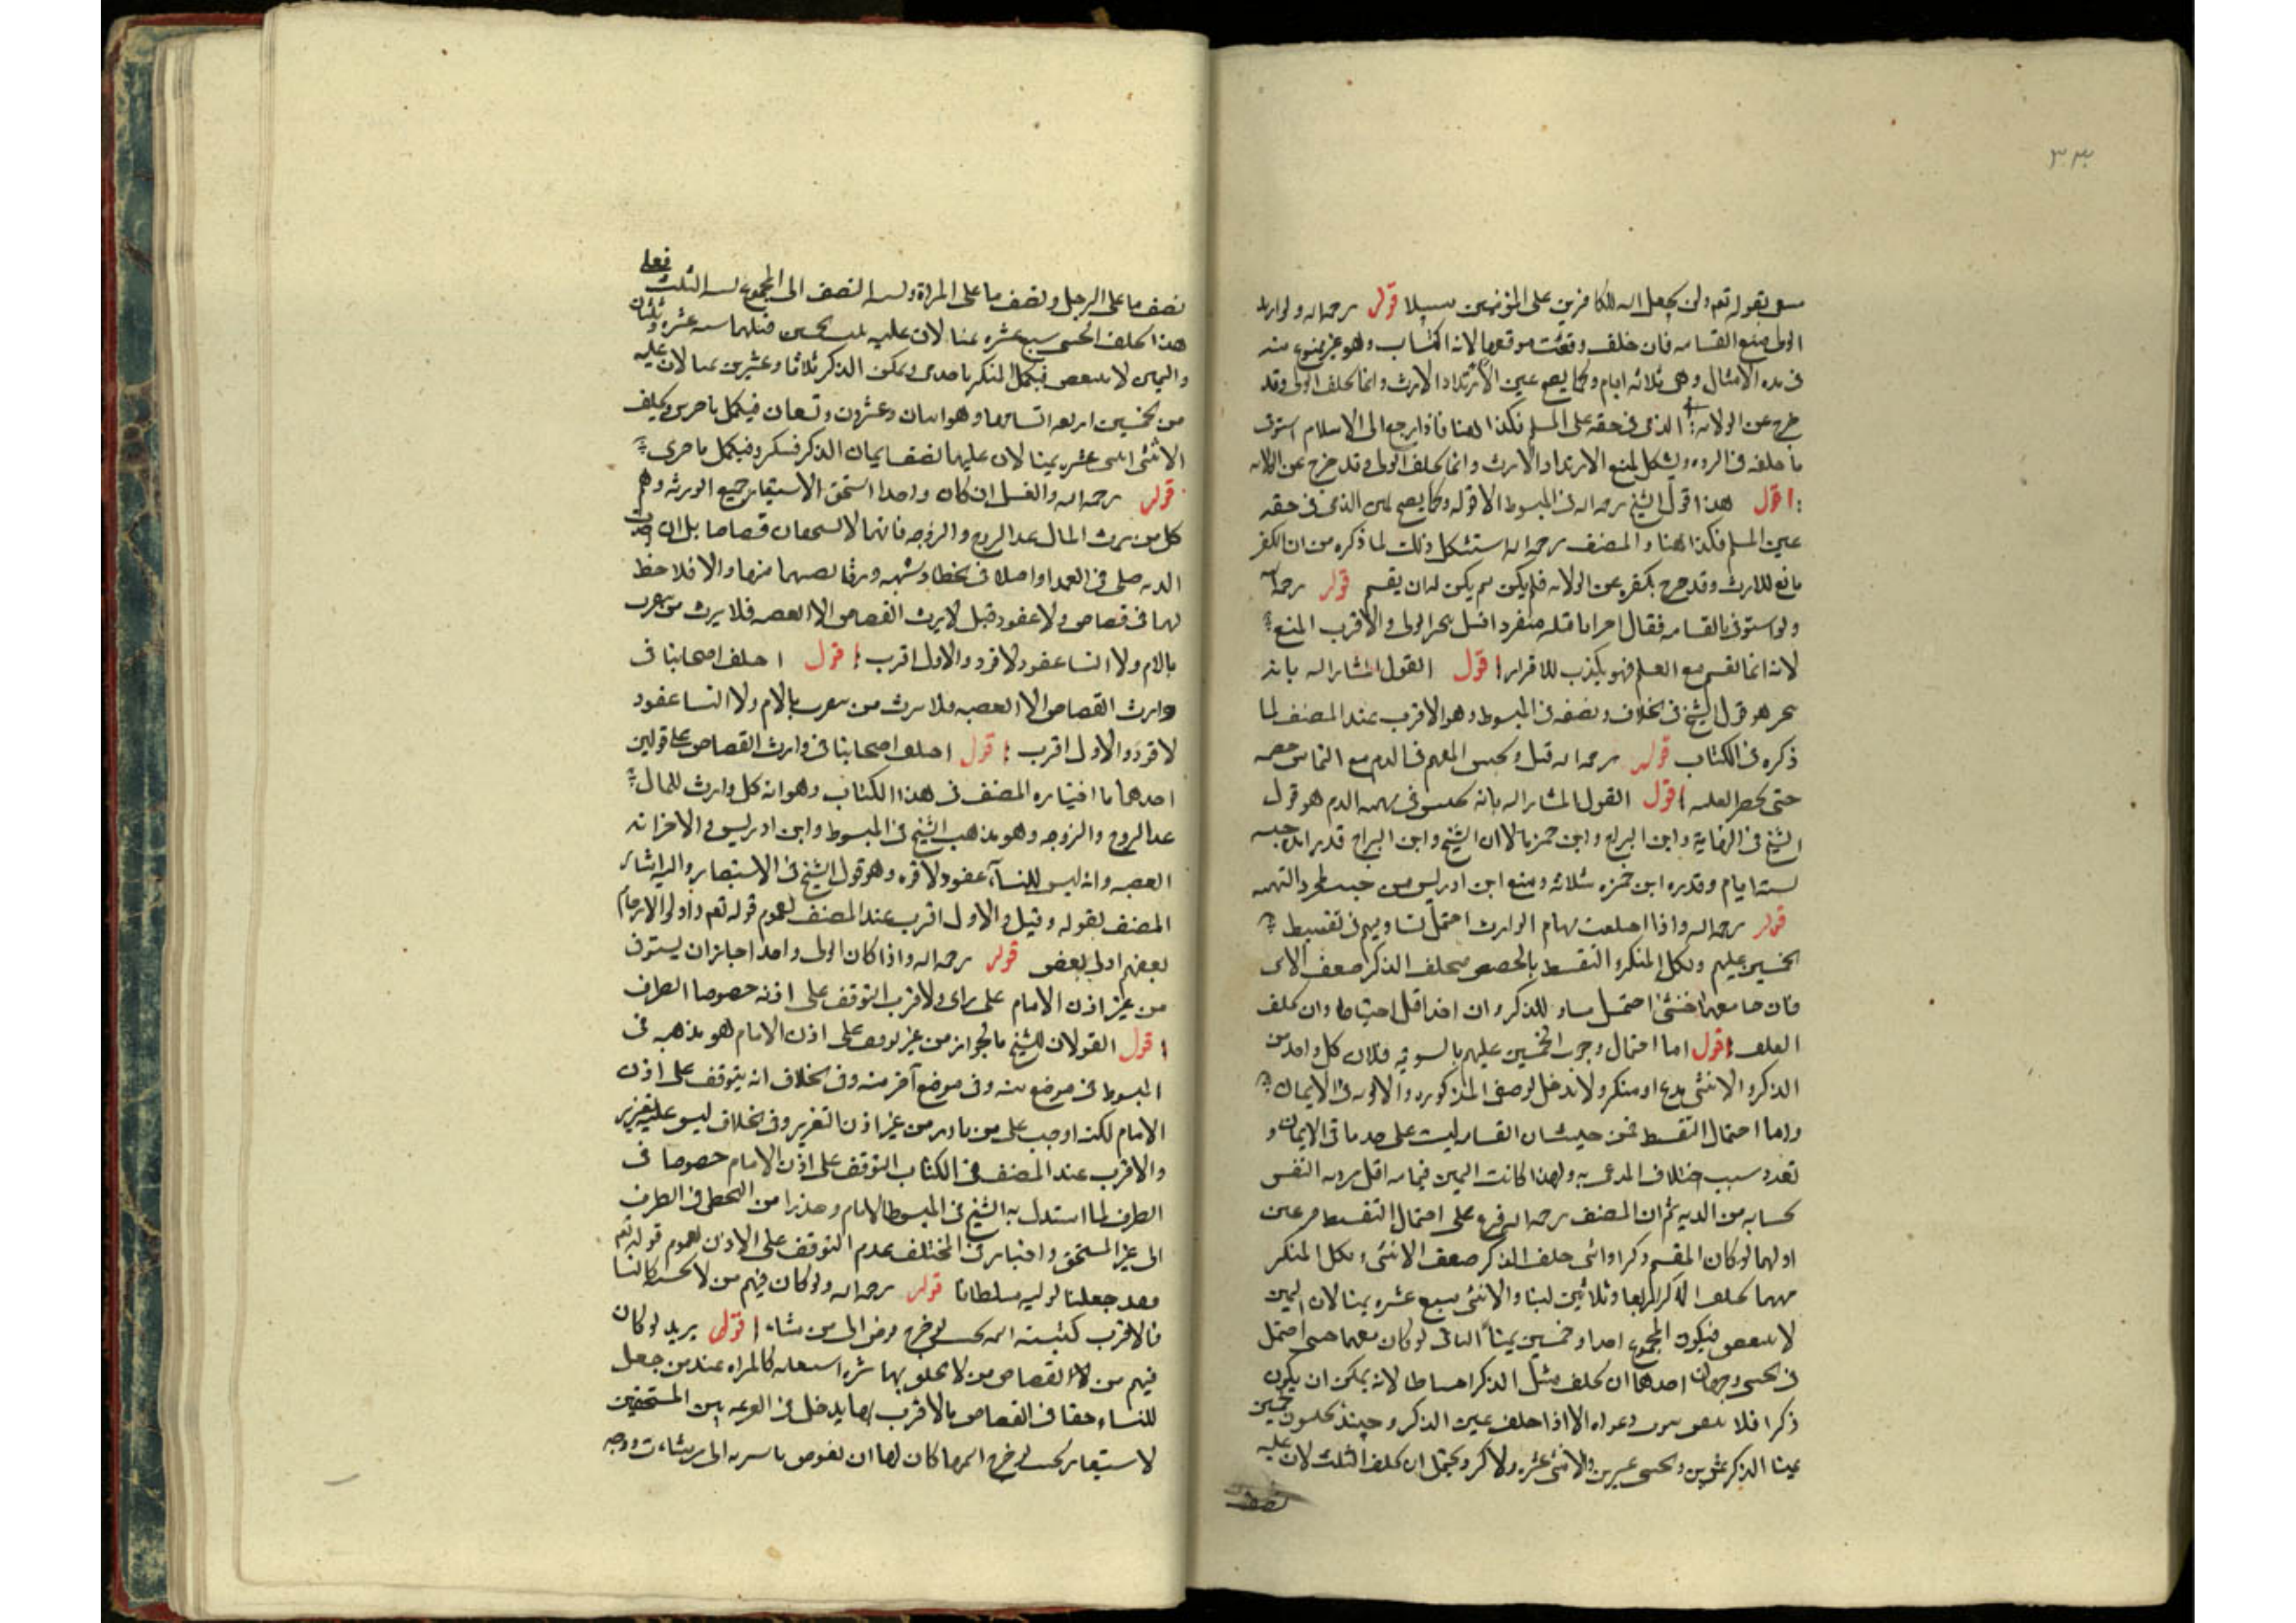 ٣٣٠
بقوله تعم ولن يجعل الله للكافرين على المؤمنين سبيلا قوله رحمه اله ولو ارتد
الولى منع القسامه فان خلف وقعت موقعها لانه اكتساب وهو غير ممنوع منه
فى مده الامثال وهى ثلاثه ايام وكما يصح يمين الارتداد الارث وانما يحلف الولى وقد
خرج عن الولايه الذمى فى حقه على المسلم فكذا هنا فاذا رجع الى الاسلام استوفى
ما حلفه فى الرده ويشكل بمنع الارتداد الارث وانما يحلف الولى وقد خرج عن الولايه
اقول هذا قول الشيخ رحمه اله فى المبسوط الا قوله وكما يصح يمين الذمى فى حقه
على المسلم فكذا هنا والمصنف رحمه اله استشكل ذلك لما ذكره من ان الكفر
مانع للارث وقد خرج بكفره عن الولايه فلم يكن له ان يقسم قوله رحمه اله
ولو استوفى بالقسامه فقال اخر انا قتلته منفردا قيل يتخير الولى والاقرب المنع
لانه انما يقسم مع العلم فهو يكذب للاقرار اقول القول المشار اليه بانه
يتخير هو قول الشيخ فى الخلاف ونصفه فى المبسوط وهو الاقرب عند المصنف لما
ذكره فى الكتاب قوله رحمه اله قيل ويحبس المتهم فى الدم مع التماس خصمه
حتى يحضر البينه اقول القول المشار اليه بانه يحبس فى تهمه الدم هو قول
الشيخ فى النهاية وابن البراج وابن حمزه الا ان الشيخ وابن البراج قدرا مده حبسه
بسته ايام وقدره ابن حمزه بثلاثه ومنع ابن ادريس من حبسه لمجرد التهمه
قوله رحمه اله واذا اختلفت سهام الوارث احتمل تساويهم فى تقسيط
الخمسين عليهم ويكمل المنكر والتقسيط بالحصص فيحلف الذكر ضعف الانثى
فان جامعهما خنثى احتمل مساواته للذكر وان اخذ اقل احتياطا وان يحلف
الثلث اقول اما احتمال وجوب الخمسين عليهم بالسويه فلان كل واحد من
الذكر والانثى مدع او منكر ولا مدخل لوصف الذكوريه والانوثيه فى الايمان
واما احتمال التقسيط فمن حيث ان القسامه ليست على حد باقى الايمان و
تعدد بسبب اختلاف المدعى به ولهذا كانت اليمين فيما به اقل من ديه النفس
بحسابه من الديه ثم ان المصنف رحمه اله فرع على احتمال التقسيط فرعين
اولهما لو كان المقسم ذكرا وانثى حلف الذكر ضعف الانثى ويكمل المنكر
منهما فيحلف الذكر اربعا وثلاثين يمينا والانثى سبع عشره يمينا لان اليمين
لا يتبعض فيكون المجموع احدا وخمسين يمينا الثانى لو كان معهما خنثى احتمل
فى الخنثى وجهان احدهما ان يحلف مثل الذكر احتياطا لانه يمكن ان يكون
ذكرا فلا دعواه الا اذا حلف يمين الذكر وحينئذ يحلفون خمسين
يمينا الذكر عشرين والخنثى عشرين والانثى عشره ولا كسر ويحتمل ان يحلف الثلث لان عليه
نصف
نصف ما على الرجل ونصف ما على المراة ونسبه النصف الى المجموع نسبه الثلث فعلى
هذا يحلف الخنثى سبع عشره يمينا لان عليه ثلث الخمسين مبلغها سته عشره وثلثان
واليمين لا يتبعض فيكمل المنكر باحدى ويمكن الذكر ثلاثا وعشرين يمينا لان عليه
من الخمسين اربعه اتساعها وهو اثنان وعشرون وتسعان فيكمل باخرى ويحلف
الانثى اثنى عشره يمينا لان عليها نصف ايمان الذكر فينكسر فيكمل باخرى
قوله رحمه اله والقتيل ان كان واحدا استحق الاستيفاء جميع الورثه وهم
كل من يرث المال عدا الزوج والزوجه فانهما لا يستحقان قصاصا بل ان
الديه صلحا فى العمد او اصلا فى الخطا وشبهه ورثا نصيبهما منها والا فلا حظ
لهما فى قصاص ولا عفو وقيل لا يرث القصاص الا العصبه فلا يرث من يتقرب
بالام ولا النسا عفو ولا قود والاول اقرب اقول اختلف اصحابنا فى
وارث القصاص الا العصبه فلا يرث من يتقرب بالام ولا النسا عفو و
لا قود والاول اقرب اقول اختلف اصحابنا فى وارث القصاص على قولين
احدهما ما اختاره المصنف فى هذا الكتاب وهو انه كل وارث للمال
عدا الزوج والزوجه وهو مذهب الشيخ فى المبسوط وابن ادريس والاخر انه
العصبه وانه ليس للنسآء عفو ولا قود وهو قول الشيخ فى الاستبصار واليه اشار
المصنف بقوله وقيل والاول اقرب عند المصنف لعموم قوله تعم واولوا الارحام
بعضهم اولى ببعض قوله رحمه اله واذا كان الولى واحدا جاز ان يستوفى
من غير اذن الامام على راى والاقرب التوقف على اذنه خصوصا الطرف
اقول القولان للشيخ فالجواز من غير توقف على اذن الامام هو مذهبه فى
المبسوط فى موضع منه وفى موضع آخر منه وفى الخلاف انه يتوقف على اذن
الامام لكنه اوجب على من بادر من غير اذن التعزير وفى الخلاف ليس عليه تعزير
والاقرب عند المصنف فى الكتاب التوقف على اذن الامام خصوصا فى
الطرف لما استدل به الشيخ فى المبسوط الامام وحذرا من التخطى فى الطرف
الى غير المستحق واختار فى المختلف عدم التوقف على الاذن لعموم قوله تعم
فقد جعلنا لوليه سلطانا قوله رحمه اله ولو كان فيهم من لا يحسنه كالنسا
فالاقرب كتبة اسمه فان خرج فوض الى من شاء اقول يريد لو كان
فيهم من له القصاص من لا مباشره استيفائه كالمراه عند من جعل
للنساء حقا فى القصاص فالاقرب انها يدخل فى القرعه بين المستحقين
لاستيفاء خرج اسمها كان لها ان تفوض مباشرته الى من شاءت ووجه